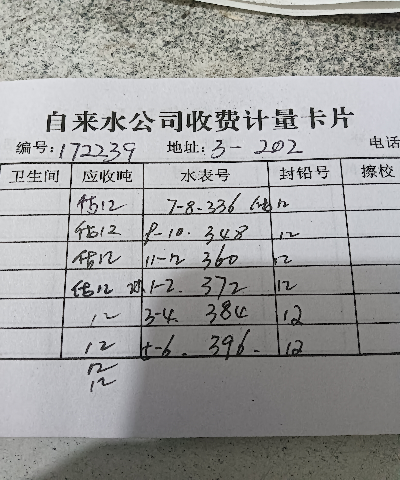 自来水公司收费计量卡片
编号:172239 地址:3-202 电话
卫生间 应收吨 水表号 封铅号 擦校
估12 7-8.336 12
估12 9-10.348 12
估12 11-12 360 12
估12 1-2.372 12
12 3-4.384 12
12 5-6.396. 12
12
12